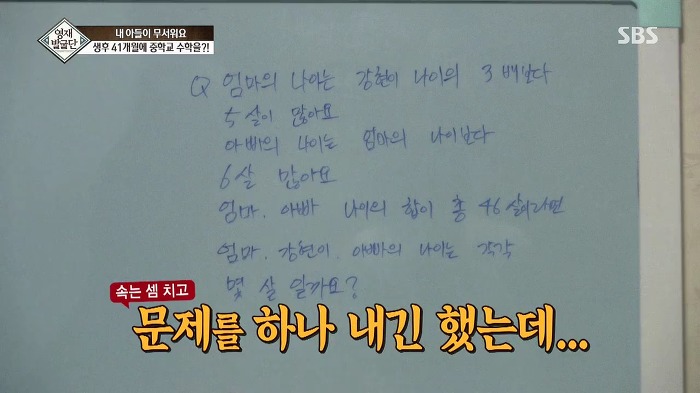 영재
발굴단
내 아들이 무서워요
생후 41개월에 중학교 수학을?!
SBS
Q 엄마의 나이는 강현이 나이의 3배보다
5살이 많아요
아빠의 나이는 엄마의 나이보다
6살 많아요
엄마. 아빠 나이의 합이 총 46살이라면
엄마. 강현이. 아빠의 나이는 각각
몇 살 일까요?
속는 셈 치고
문제를 하나 내긴 했는데...